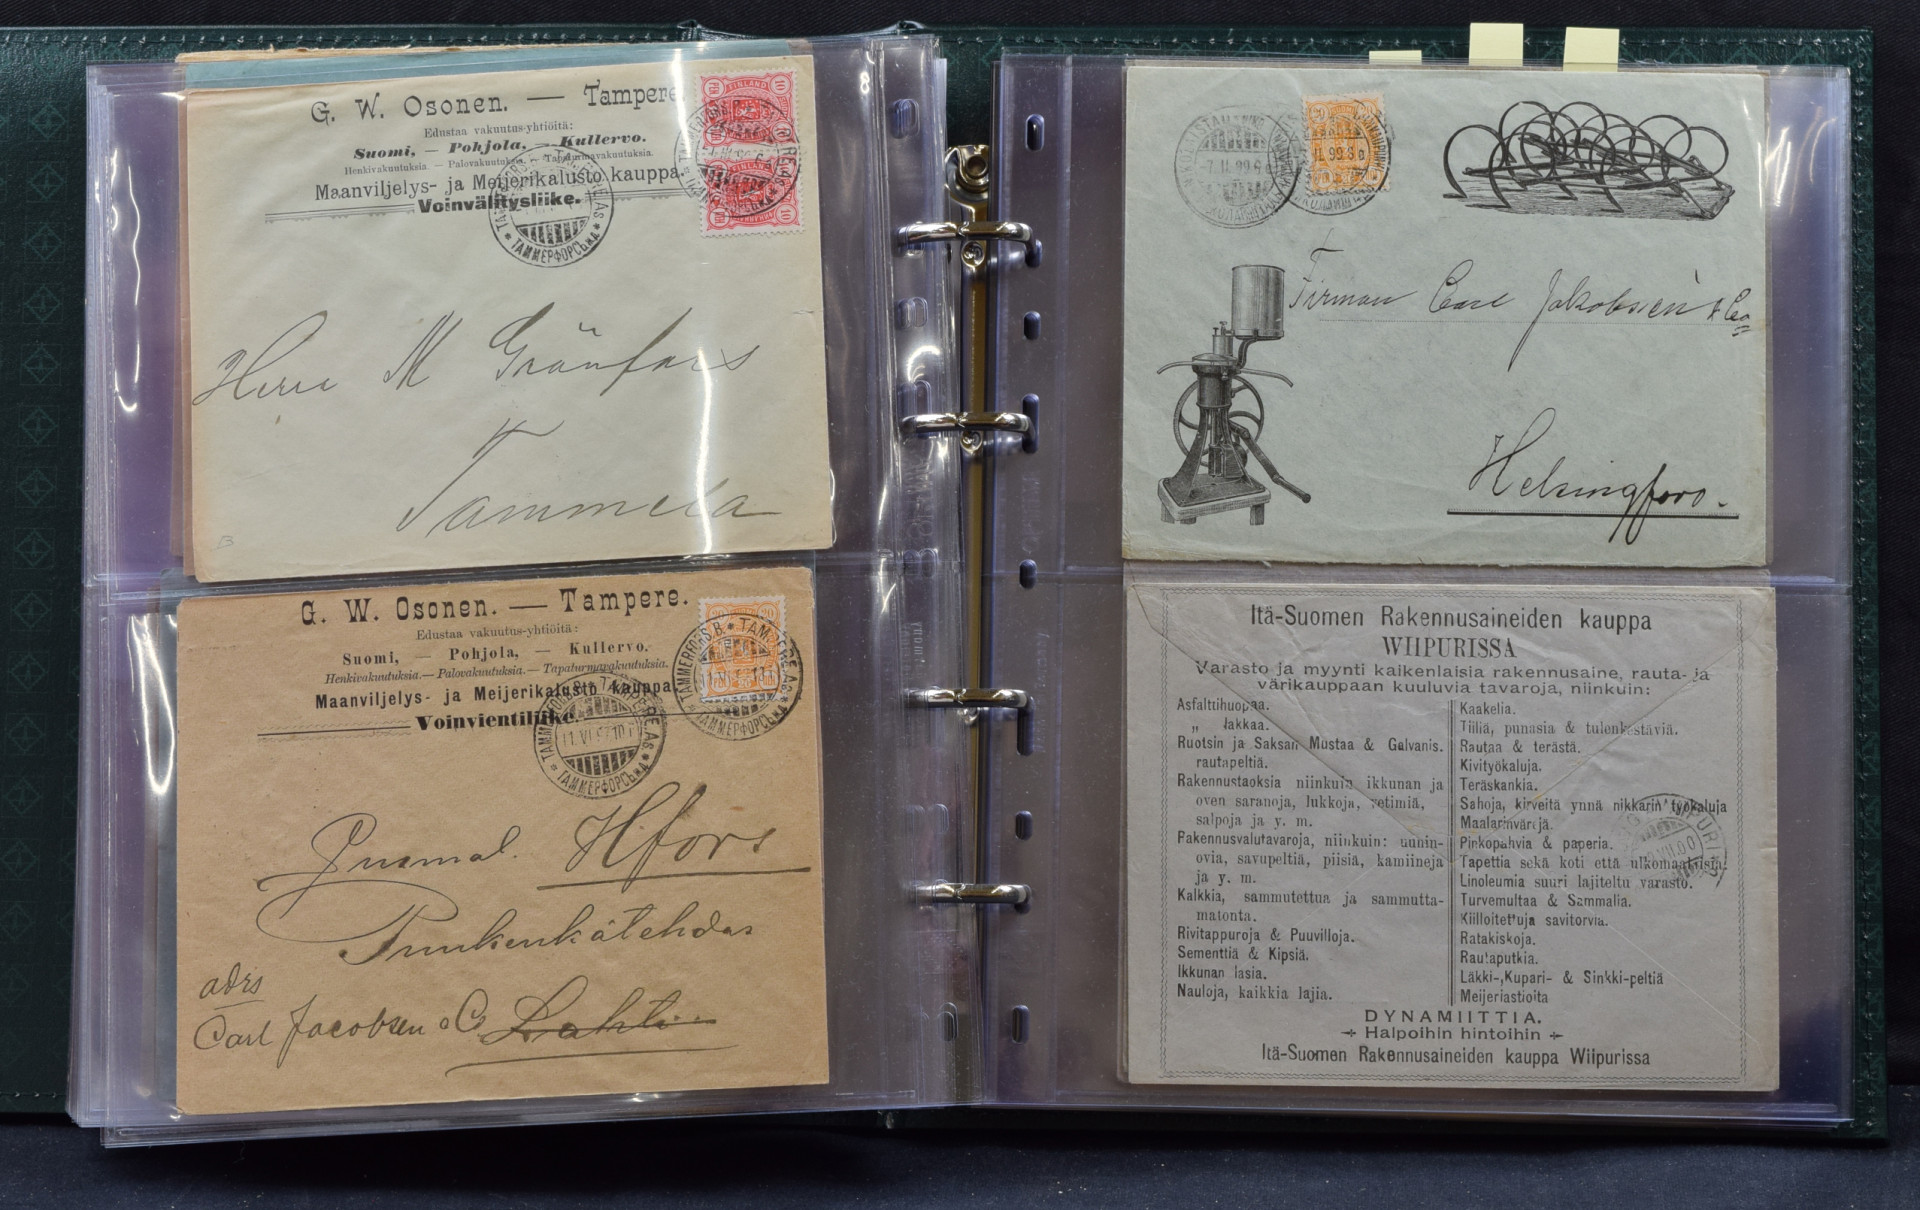 G. W. Osonen. — Tampere
Edustaa vakuutus-yhtiöitä:
Suomi, — Pohjola, — Kullervo.
Henkivakuutuksia. — Palovakuutuksia. — Tapaturmavakuutuksia.
Maanviljelys- ja Meijerikalusto kauppa.
Voinvälitysliike.
FINLAND
10
10
10
ТАММЕРФОРСЪ
Herr M Gränfors
Tammela
G. W. Osonen. — Tampere.
Edustaa vakuutus-yhtiöitä:
Suomi, — Pohjola, — Kullervo.
Henkivakuutuksia.— Palovakuutuksia. — Tapaturmavakuutuksia.
Maanviljelys- ja Meijerikalusto kauppa
Voinvientiliike.
20 20
TAMMERFORS B. * TAMPERE AS.
ТАММЕРФОРСЪ
11.VI
Hfors
adrs
Carl Jacobsen & Co Lahti
7.II.99
II.99.
Firman Carl Jakobsen & Co
Helsingfors.
Itä-Suomen Rakennusaineiden kauppa
WIIPURISSA
Varasto ja myynti kaikenlaisia rakennusaine, rauta- ja
värikauppaan kuuluvia tavaroja, niinkuin:
Asfalttihuopaa.
„ lakkaa.
Ruotsin ja Saksan Mustaa & Galvanis.
rautapeltiä.
Rakennustaoksia niinkuin ikkunan ja
oven saranoja, lukkoja, retimiä,
salpoja ja y. m.
Rakennusvalutavaroja, niinkuin: uunin-
ovia, savupeltiä, piisiä, kamiineja
ja y. m.
Kalkkia, sammutettua ja sammutta-
matonta.
Rivitappuroja & Puuvilloja.
Sementtiä & Kipsiä.
Ikkunan lasia.
Nauloja, kaikkia lajia.
Kaakelia.
Tiiliä, punasia & tulenkestäviä.
Rautaa & terästä.
Kivityökaluja.
Teräskankia.
Sahoja, kirveitä ynnä nikkarin työkaluja
Maalarinvärejä.
Pinkopahvia & paperia.
Tapettia sekä koti että ulkomaalaisia.
Linoleumia suuri lajiteltu varasto.
Turvemultaa & Sammalia.
Kiilloitettuja savitorvia.
Ratakiskoja.
Rautaputkia.
Läkki-,Kupari- & Sinkki-peltiä
Meijeriastioita
DYNAMIITTIA.
Halpoihin hintoihin
Itä-Suomen Rakennusaineiden kauppa Wiipurissa